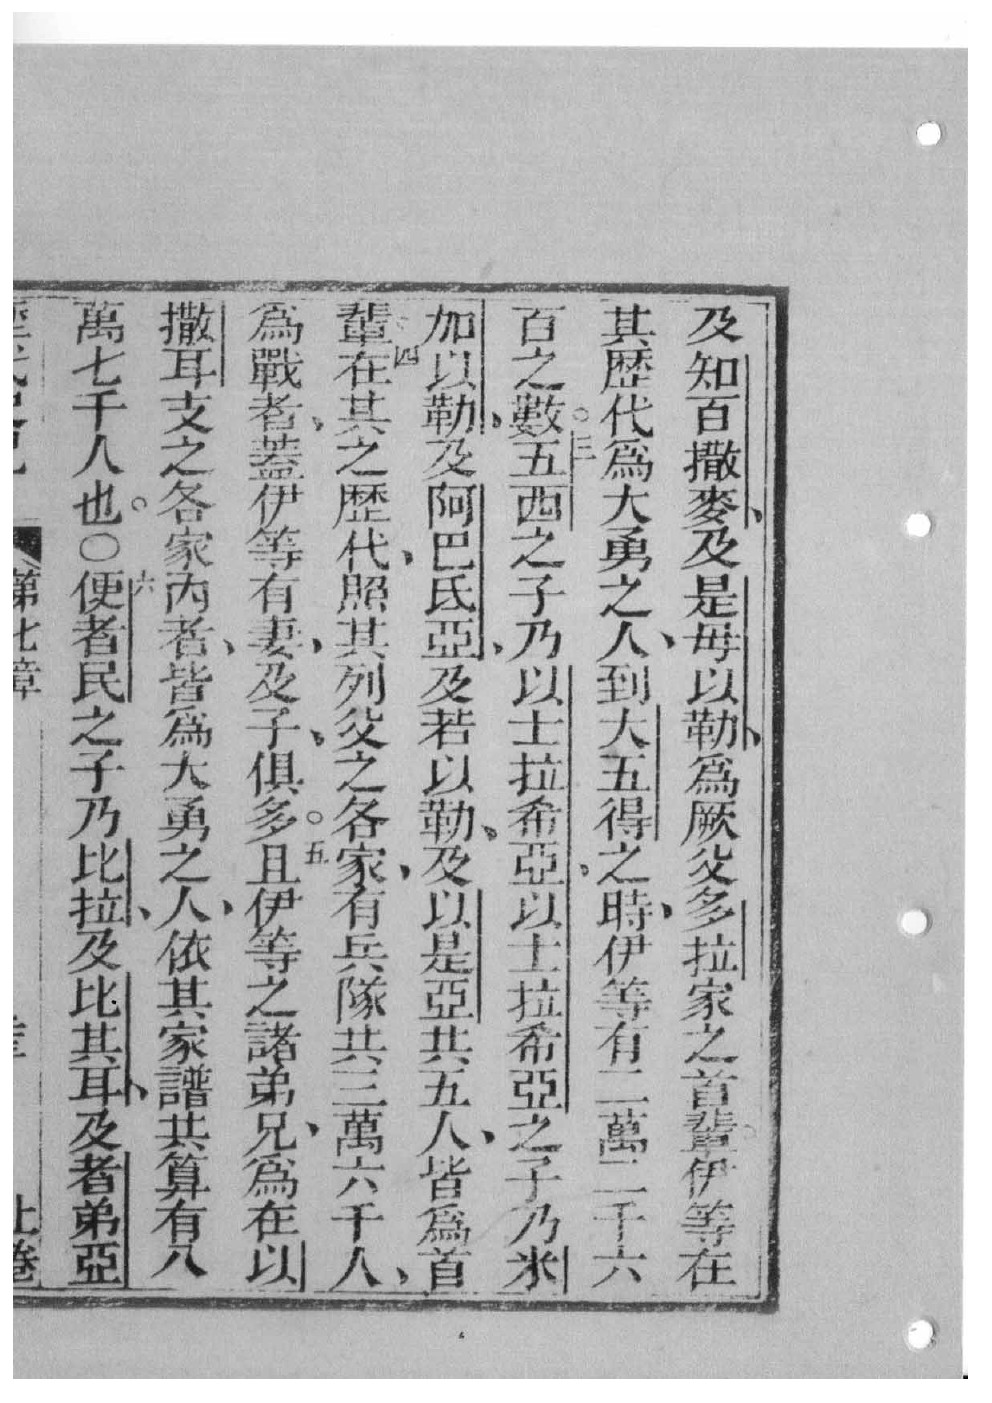 及知百撒麥、及是毋以勒、爲厥父多拉家之首輩。伊等在
其歷代爲大勇之人、到大五得之時、伊等有二萬二千六
百之數。三五西之子乃以士拉希亞、以士拉希亞之子乃米
加以勒、及阿巴氏亞、及若以勒、及以是亞共五人、皆爲首
輩。四在其之歷代、照其列父之各家、有兵隊共三萬六千人、
爲戰者、蓋伊等有妻、及子、俱多。五且伊等之諸弟兄、爲在以
撒耳支之各家丙者、皆爲大勇之人、依其家譜共算有八
萬七千人也。○六便者民之子乃比拉、及比其耳、及者弟亞
第七章 上卷